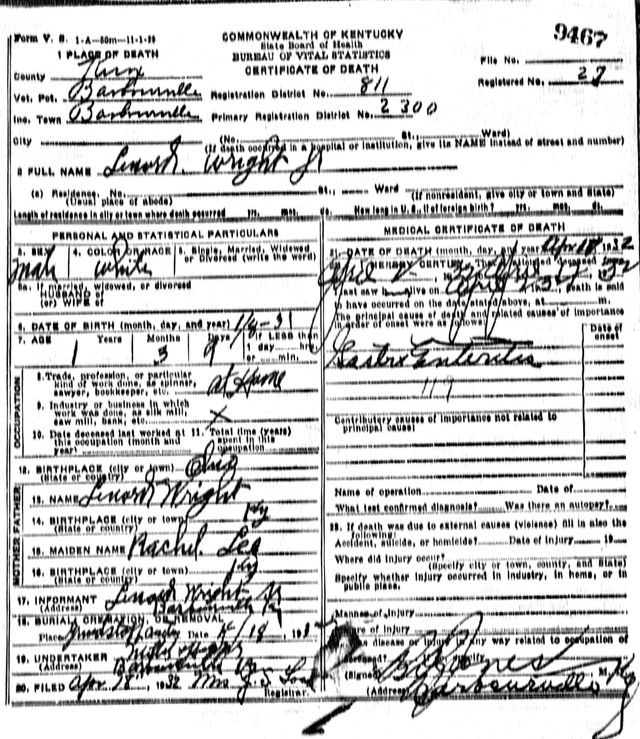 Form V. S. 1-A-50m-11-1-30
COMMONWEALTH OF KENTUCKY
State Board of Health
BUREAU OF VITAL STATISTICS
CERTIFICATE OF DEATH
9467
File No.
Registered No. 27
1 PLACE OF DEATH
County Knox
Vot. Pct. Barbourville
Inc. Town Barbourville
City
Registration District No. 811
Primary Registration District No. 2300
(No. St.; Ward)
(If death occurred in a hospital or institution, give its NAME instead of street and number)
2 FULL NAME Lenord Wright Jr
(a) Residence. No. St., Ward
(Usual place of abode) (If nonresident, give city or town and State)
Length of residence in city or town where death occurred yrs. mos. ds. How long in U. S., if of foreign birth? yrs. mos. ds.
PERSONAL AND STATISTICAL PARTICULARS
3. SEX 4. COLOR OR RACE 5. Single, Married, Widowed or Divorced (write the word)
male White
5a. If married, widowed, or divorced
HUSBAND of
(or) WIFE of
6. DATE OF BIRTH (month, day, and year) 1/9-31
7. AGE Years Months Days If LESS than
1 3 9 1 day hrs.
or min.
OCCUPATION
8. Trade, profession, or particular
kind of work done, as spinner,
sawyer, bookkeeper, etc. at Home
9. Industry or business in which
work was done, as silk mill,
saw mill, bank, etc. X
10. Date deceased last worked at
this occupation (month and
year)
11. Total time (years)
spent in this
occupation
12. BIRTHPLACE (city or town) Ohio
(State or country)
FATHER
13. NAME Lenord Wright
14. BIRTHPLACE (city or town) Ky
(State or country)
MOTHER
15. MAIDEN NAME Rachel Lee
16. BIRTHPLACE (city or town) Ky
(State or country)
17. INFORMANT Lenord Wright Sr
(Address) Barbourville Ky
18. BURIAL, CREMATION, OR REMOVAL
Place Date 4/18, 193
19. UNDERTAKER
(Address) Barbourville Ky
20. FILED Apr 18, 1932 Mrs
Registrar.
MEDICAL CERTIFICATE OF DEATH
21. DATE OF DEATH (month, day, and year) Apr 18 1932
April 17 32
last saw h alive on April death is said
to have occurred on the date stated above, at m.
The principal cause of death and related causes of importance
in order of onset were as follows:
Date of onset
Gastro Enteritis
119
Contributory causes of importance not related to
principal cause:
Name of operation Date of
What test confirmed diagnosis? Was there an autopsy?
23. If death was due to external causes (violence) fill in also the
following:
Accident, suicide, or homicide? Date of injury 19
Where did injury occur?
(Specify city or town, county, and State)
Specify whether injury occurred in industry, in home, or in
public place.
Manner of injury
Nature of injury
disease or injury in any way related to occupation of
deceased?
(Signed) M.
(Address) Barbourville Ky